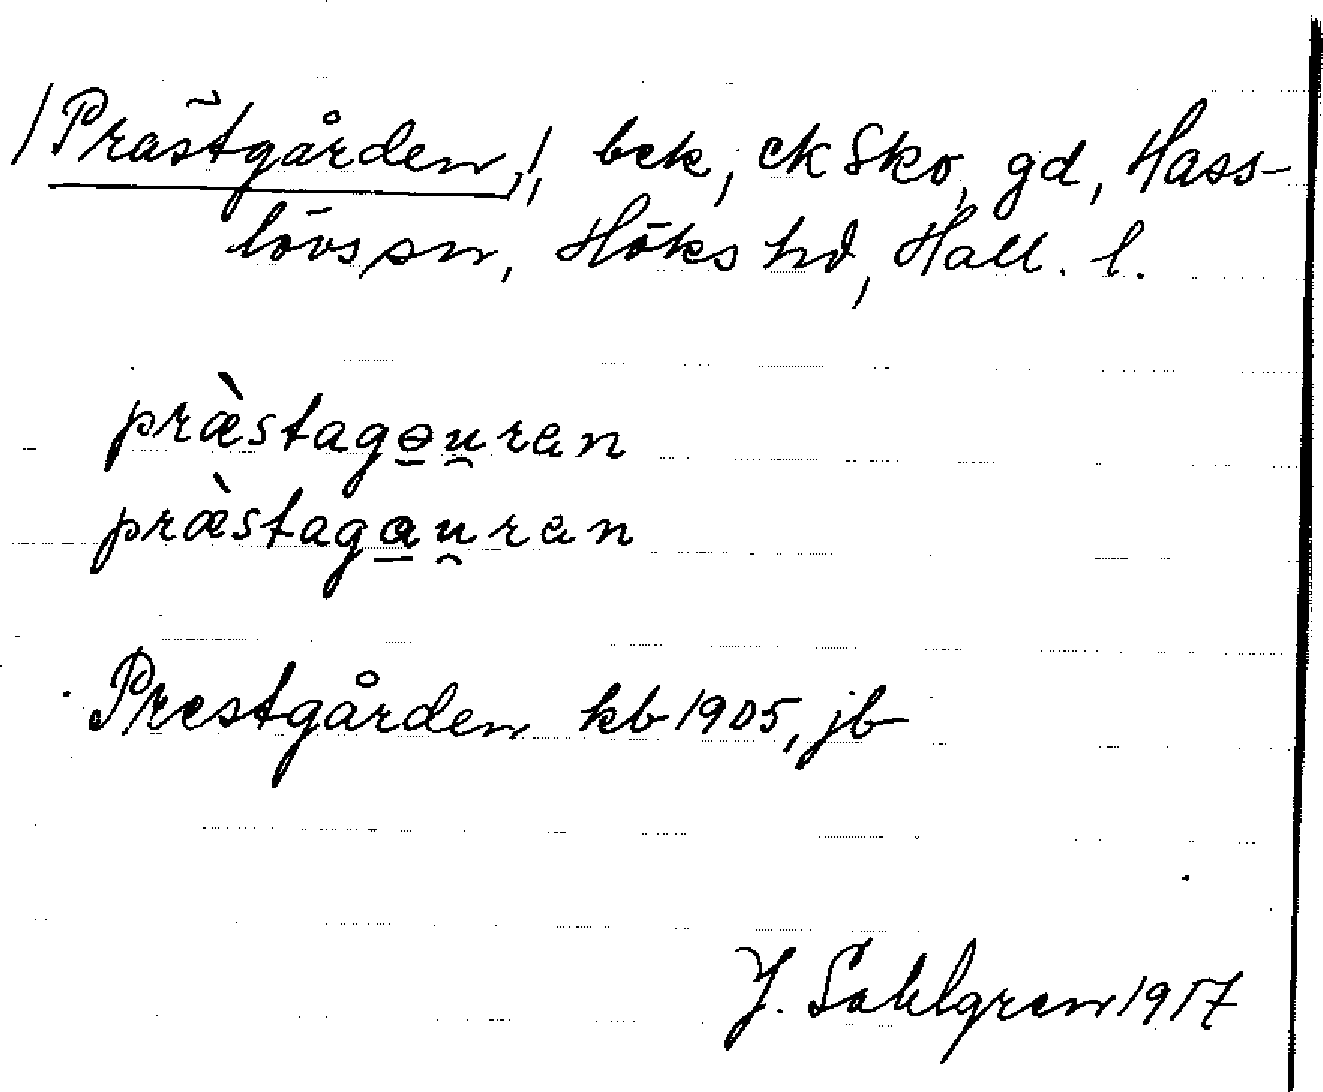 /Prästgården,/, bck, ck Sko, gd, Hass-
lövs sn, Höks hd, Hall. l.
præ̀stagɵu̯ran
præ̀stagau̯ran
Prestgården kb 1905, jb
J. Sahlgren 1917